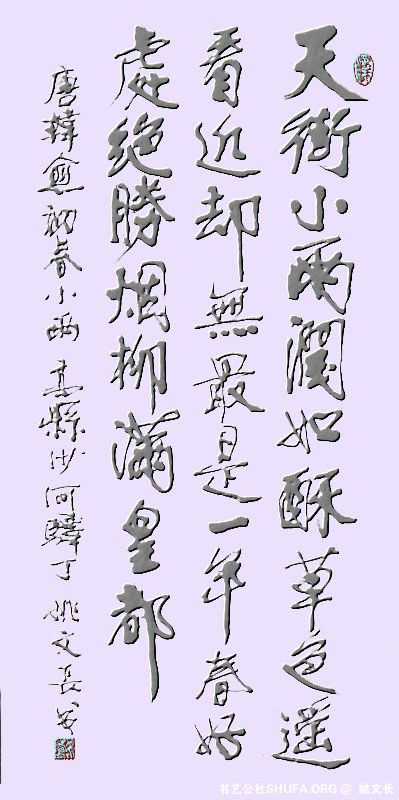 天街小雨潤如酥草色遥
看近却無最是一年春好
處絶勝烟柳滿皇都
唐韓愈初春小雨 高縣沙河驛丁 姚文長书
书艺公社SHUFA.ORG @ 姚文长